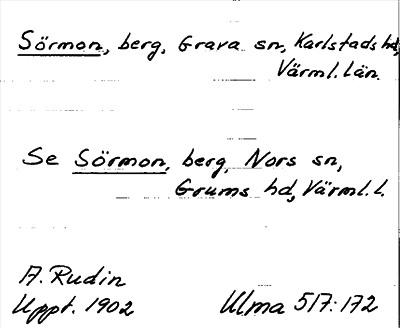 Sörmon, berg, Grava sn, Karlstads hd,
Värml. län.
Se Sörmon, berg, Nors sn,
Grums hd, Värml. l.
A. Rudin
Uppt. 1902 Ulma 517:172